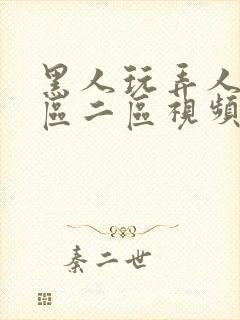 黑人玩弄人
區二區視頻
秦二世